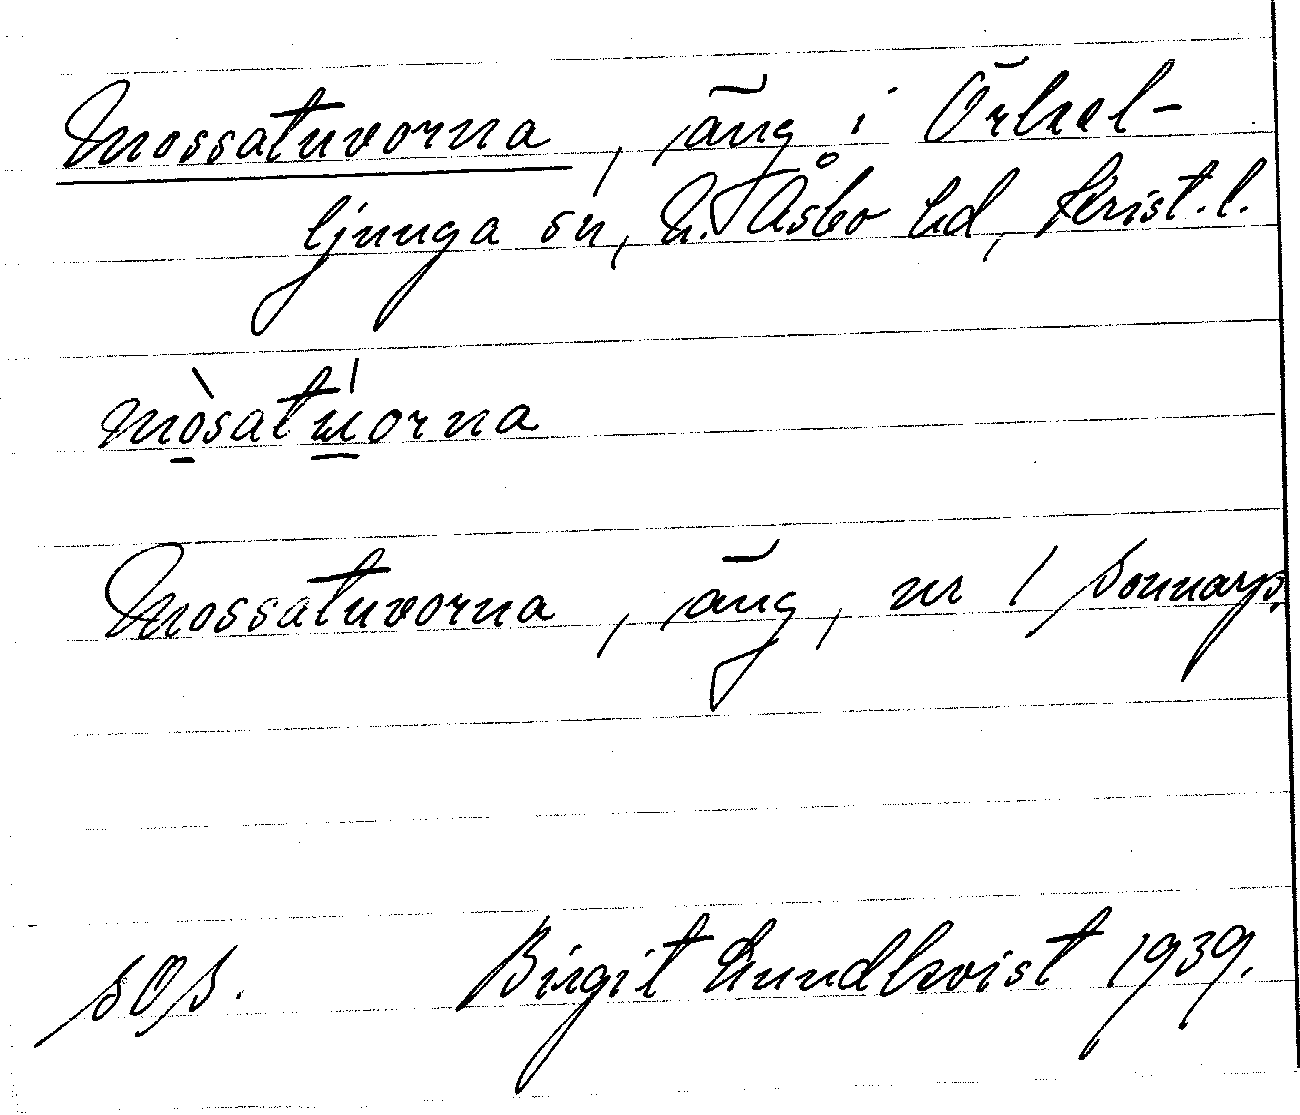 Mossatuvorna, äng i Örkel-
ljunga sn, N. Åsbo hd, Krist. l.
mòsatúorna
Mossatuvorna, äng, nr 1 Sonnarp.
SOS. Birgit Lundkvist 1939.